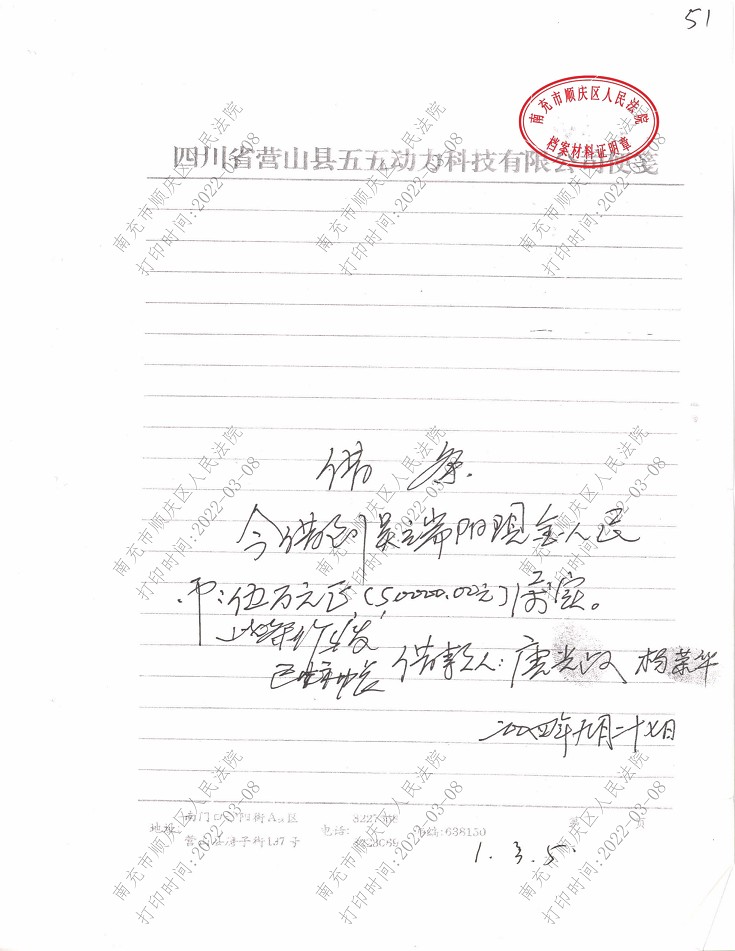 51
南充市顺庆区人民法院
档案材料证明章
四川省营山县五五动力科技有限公司便笺
南充市顺庆区人民法院
打印时间:2022-03-08
南充市顺庆区人民法院
打印时间:2022-03-08
南充市顺庆区人民法院
打印时间:2022-03-08
借 条.
今借到吴端阳现金人民
币:伍万元正(50000.00元)属实。
借款人: 唐光汉 杨荣华
二〇〇四年九月二十七日
南充市顺庆区人民法院
打印时间:2022-03-08
南充市顺庆区人民法院
打印时间:2022-03-08
南充市顺庆区人民法院
打印时间:2022-03-08
地址: 南门口 街A 区 电话: 8227
营山县 子街137号 邮编:638150
1.3.5.
南充市顺庆区人民法院
打印时间:2022-03-08
南充市顺庆区人民法院
打印时间:2022-03-08
南充市顺庆区人民法院
打印时间:2022-03-08